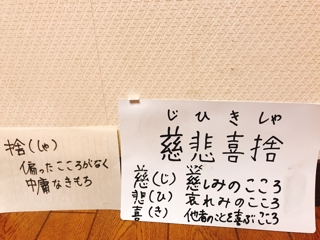 じ ひ き しゃ
慈 悲 喜 捨
慈(じ) 慈しみのこころ
悲(ひ) 哀れみのこころ
喜(き) 他者のことを喜ぶこころ
捨(しゃ)
偏ったこころがなく
中庸なきもち